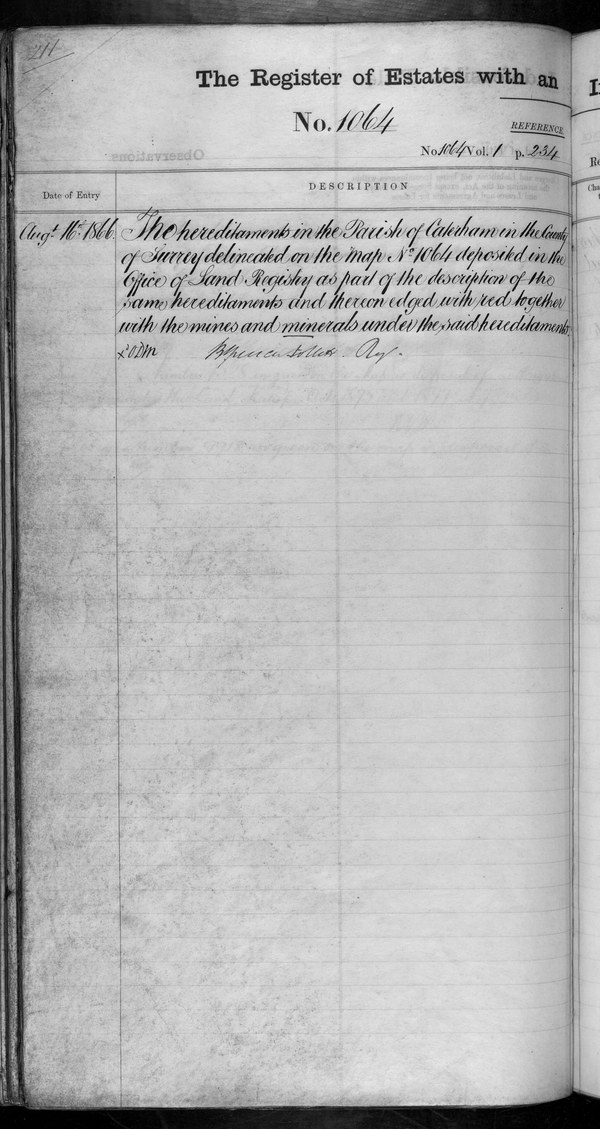 211
The Register of Estates with an
No. 1064
REFERENCE
No 1064 Vol. 1 p. 234
Date of Entry
DESCRIPTION
Augt. 16th. 1866.
The hereditaments in the Parish of Caterham in the County
of Surrey delineated on the map No 1064 deposited in the
Office of Land Registry as part of the description of the
same hereditaments and thereon edged with red together
with the mines and minerals under the said hereditaments
Reg.